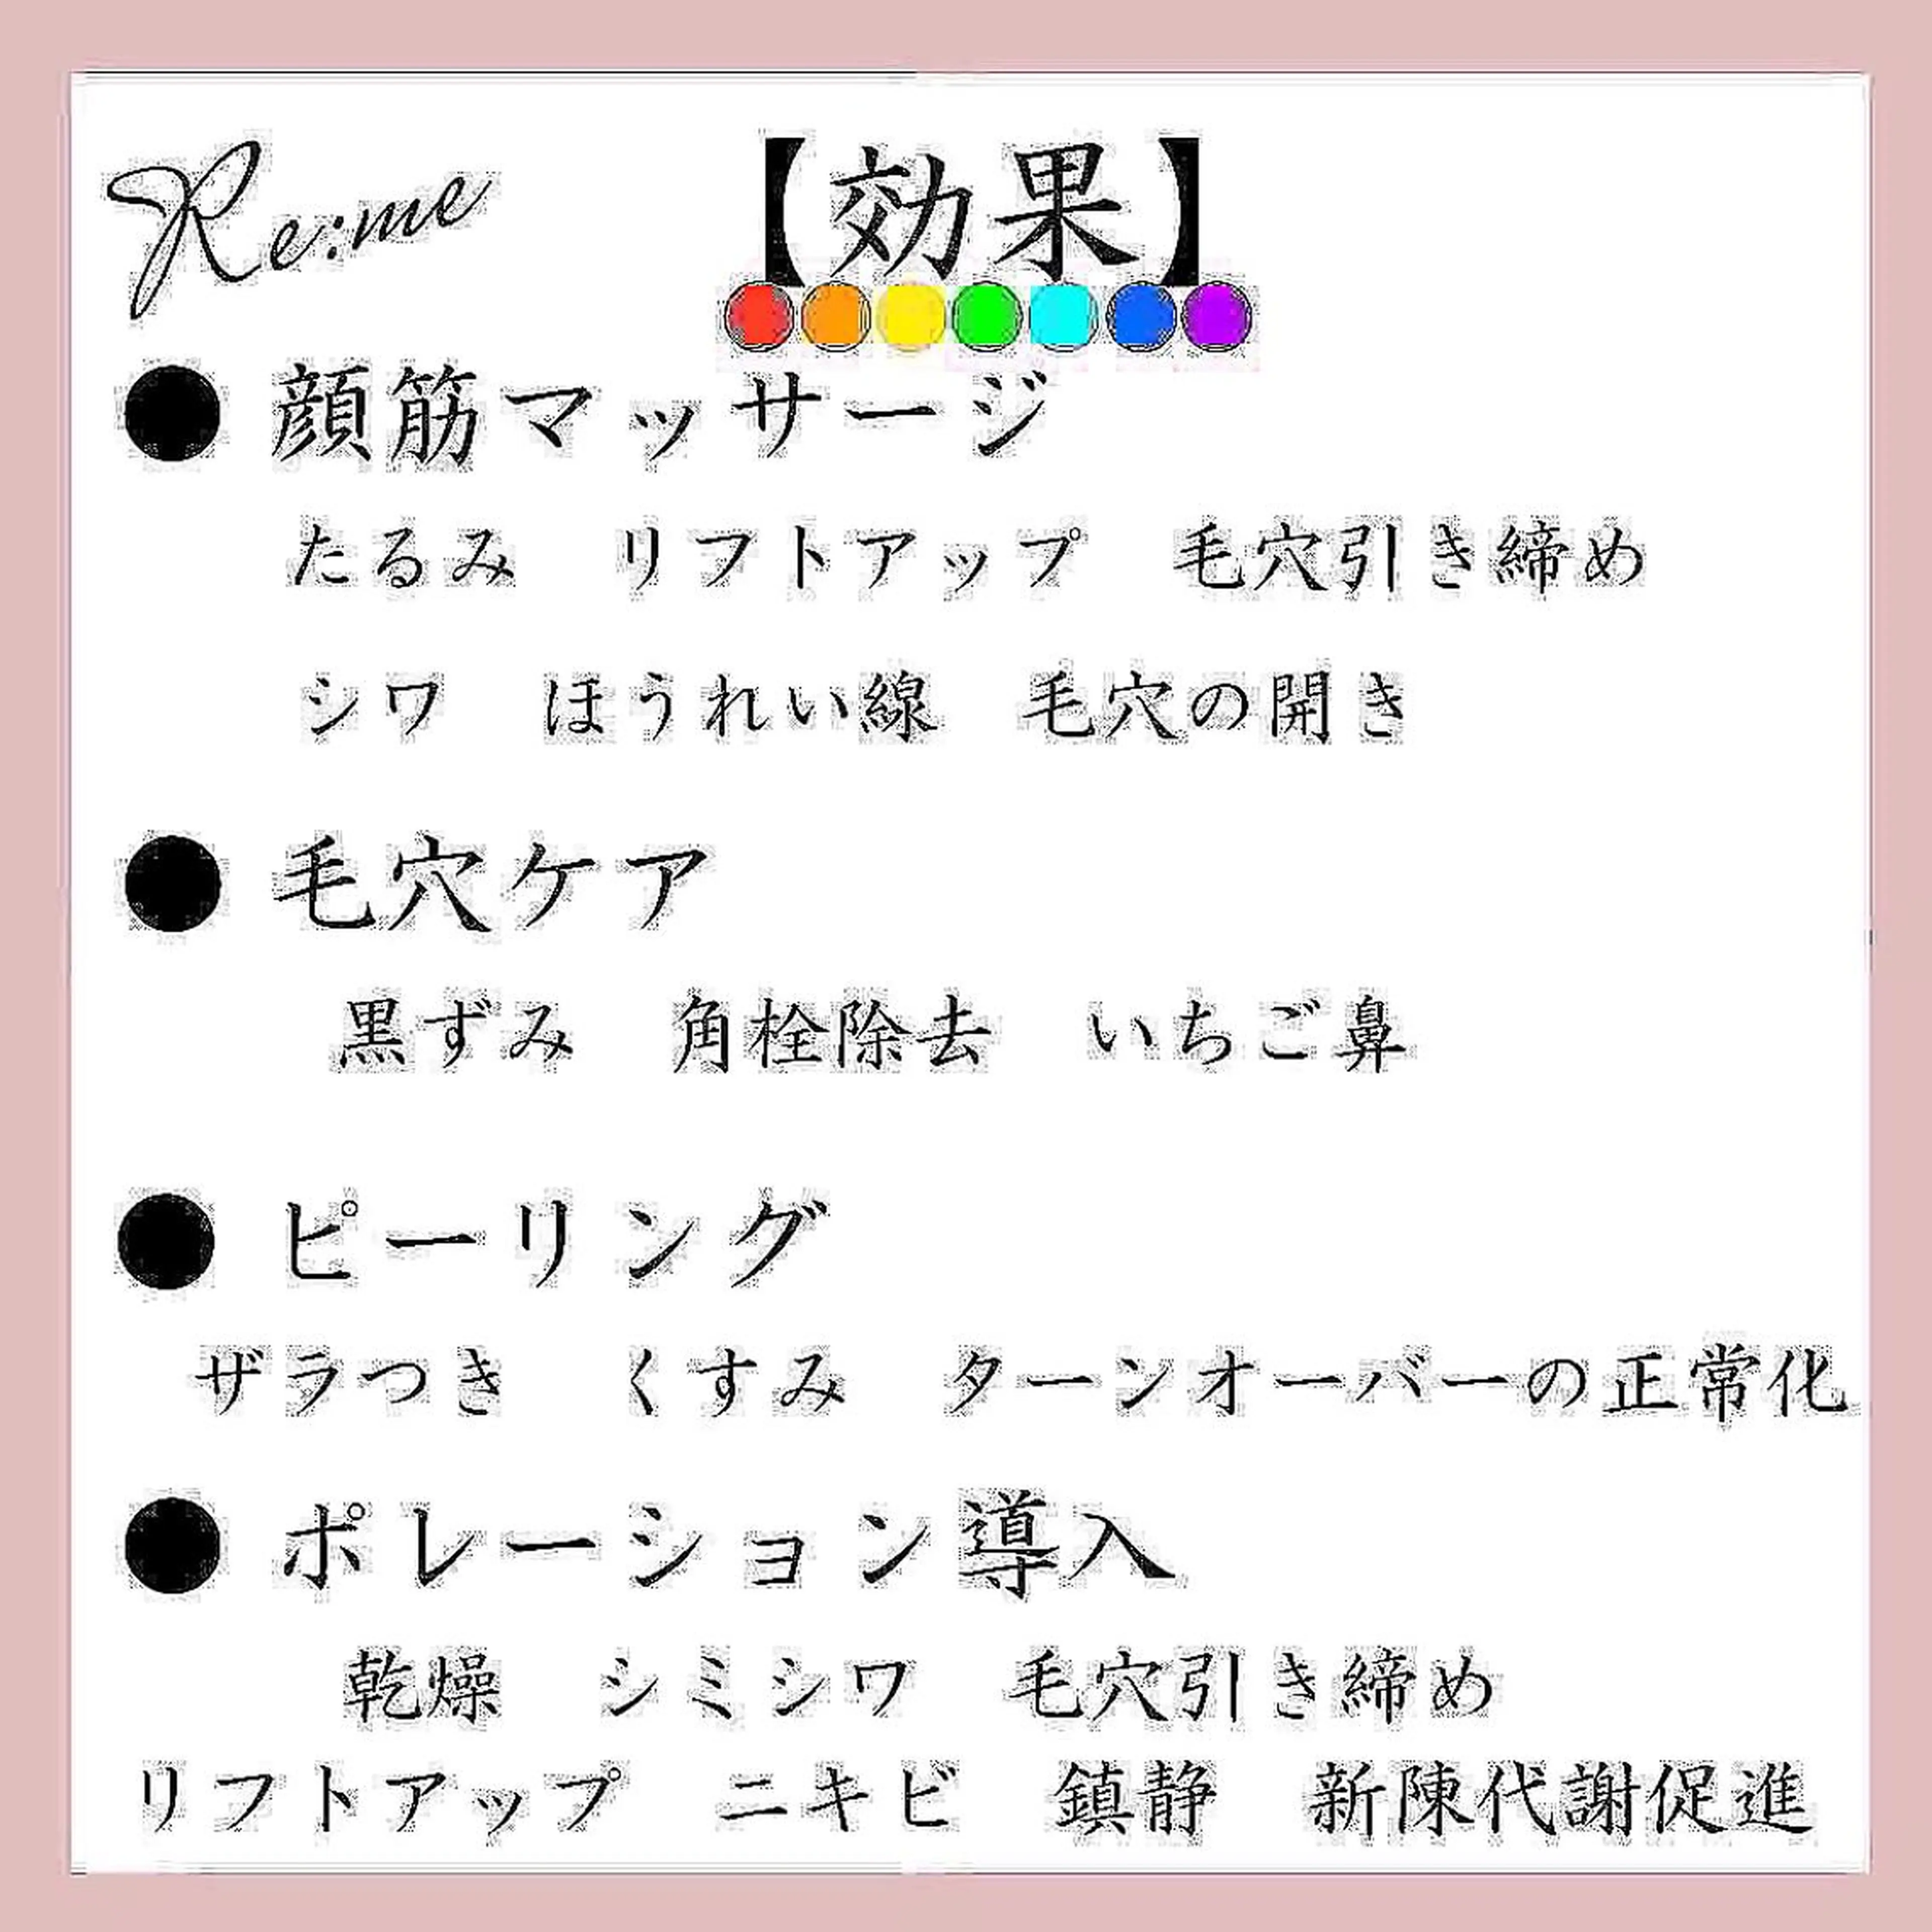 Re:me
【効果】
● 顔筋マッサージ
たるみ　リフトアップ　毛穴引き締め
シワ　ほうれい線　毛穴の開き
● 毛穴ケア
黒ずみ　角栓除去　いちご鼻
● ピーリング
ザラつき　くすみ　ターンオーバーの正常化
● ポレーション導入
乾燥　シミシワ　毛穴引き締め
リフトアップ　ニキビ　鎮静　新陳代謝促進